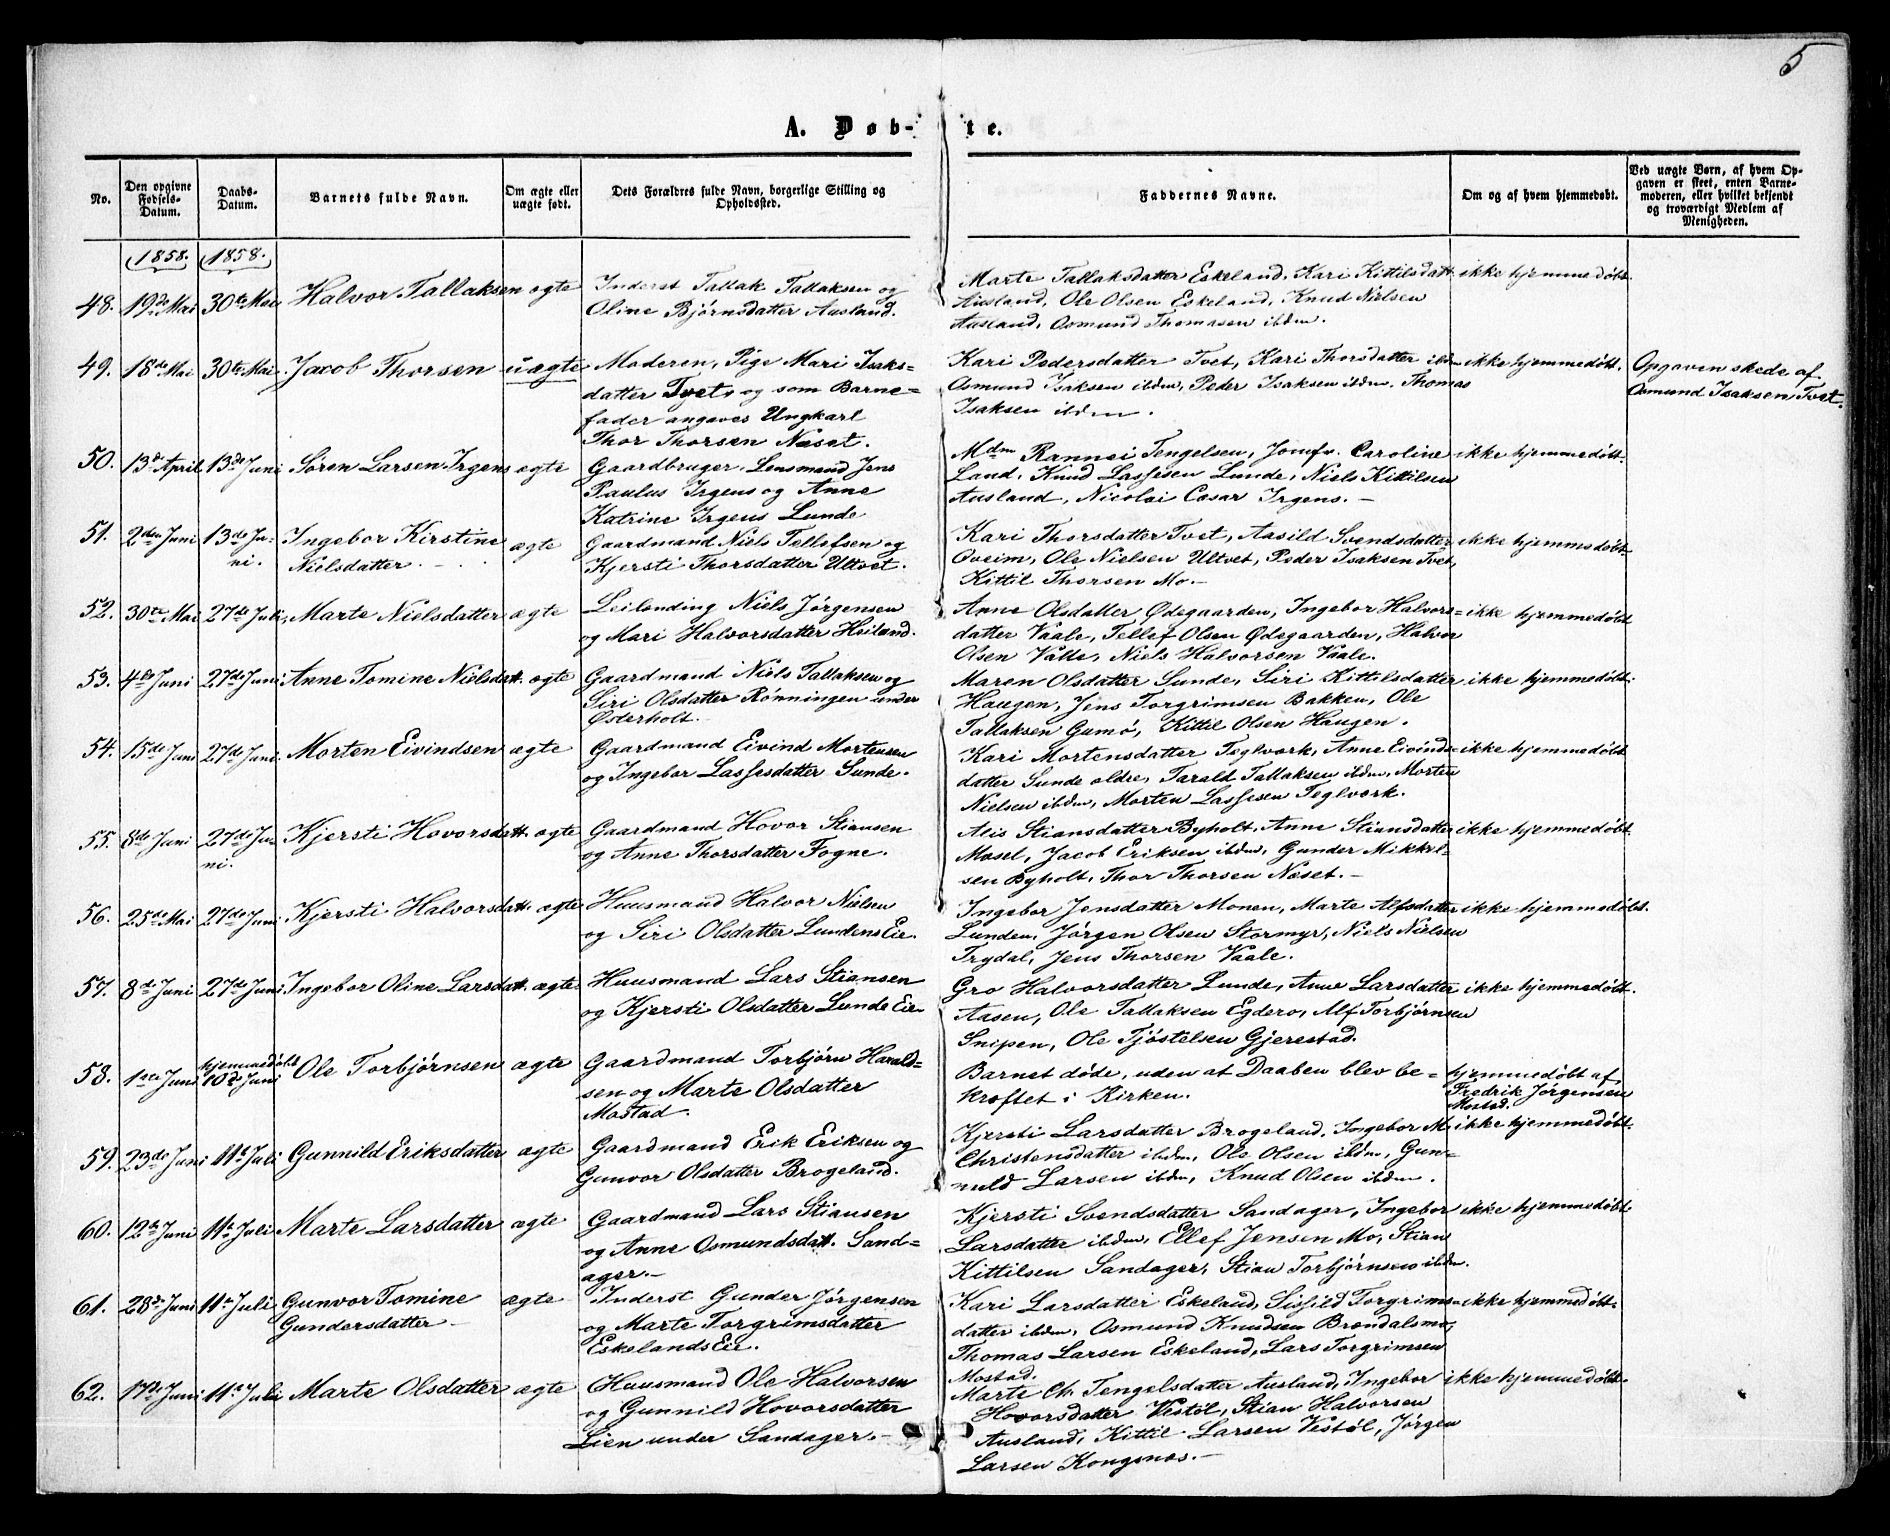 5
A. Døb-te.
No.
Den opgivne Fødsels-Datum.
Daabs-Datum.
Barnets fulde Navn.
Om ægte eller uægte født.
Dets Forældres fulde Navn, borgerlige Stilling og Opholdssted.
Faddernes Navne.
Om og af hvem hjemmedøbt.
Ved uægte Børn, af hvem Opgaven er skeet, enten Barnemoderen, eller hvilket bekjendt og troværdigt Medlem af Menigheden.
1858. 1858.
48. 19de Mai 30te Mai Halvor Tallaksen ægte
Inderst Tallak Tallaksen og
Oline Bjørnsdatter Ausland.
Marte Tallaksdatter Eskeland, Kari Kittilsdatt.
Ausland, Ole Olsen Eskeland, Knud Nielsen
Ausland, Osmund Thomasen ibdm.
ikke hjemmedøbt.
49. 18de Mai 30te Mai Jacob Thorsen uægte
Moderen, Pige Mari Isaks-
datter Tvet, og som Barne-
fader angaves Ungkarl
Thor Thorsen Næset.
Kari Pedersdatter Tvet, Kari Thorsdatter ibdm
Osmund Isaksen ibdm, Peder Isaksen ibdm. Thomas
Isaksen ibdm.
ikke hjemmedøbt.
Opgaven skede af
Osmund Isaksen Tvet.
50. 13de April 13de Juni Søren Larsen Irgens ægte
Gaardbruger, Lensmand Jens
Paulus Irgens og Anne
Katrine Irgens Lunde
Mdm Rannei Tengelsen, Jomfr. Caroline
Land, Knud Lassesen Lunde, Niels Kittilsen
Ausland, Nicolai Cæsar Irgens.
ikke hjemmedøbt.
51. 2den Juni 13de Ju-
ni.
Ingebor Kirstine
Nielsdatter.
ægte
Gaardmand Niels Tellefsen og
Kjersti Thorsdatter Ultvet.
Kari Thorsdatter Tvet, Aasild Svendsdatter
Oveim, Ole Nielsen Ultvet, Peder Isaksen Tvet,
Kittil Thorsen Mo.
ikke hjemmedøbt.
52. 30te Mai 27de Juli, Marte Nielsdatter ægte
Leilending Niels Jørgensen
og Mari Halvorsdatter Heiland.
Anne Olsdatter Ødegaarden, Ingebor Halvors-
datter Vaale, Tellef Olsen Ødegaarden, Halvor
Olsen Valle, Niels Halvorsen Vaale.
ikke hjemmedøbt
53. 4de Juni 27de Juni Anne Tomine Nielsdatt. ægte
Gaardmand Niels Tallaksen og
Siri Olsdatter Rønningen under
Østerholt.
Maren Olsdatter Sunde, Siri Kittilsdatter
Haugen, Jens Torgrimsen Bakken, Ole
Tallaksen Gumø, Kittil Olsen Haugen.
ikke hjemmedøbt.
54. 15de Juni 27de Juni. Morten Eivindsen ægte
Gaardmand Eivind Mortensen
og Ingebor Lassesdatter Sunde.
Kari Mortensdatter Teglværk, Anne Eivinds-
datter Sunde ældre, Tarald Tallaksen ibdm, Morten
Nielsen ibdm, Morten Lassesen Teglværk.
ikke hjemmedøbt
55. 8de Juni 27de Ju-
ni.
Kjersti Hovorsdatt. ægte
Gaardmand Hovor Stiansen
og Anne Thorsdatter Fogne.
Alis Stiansdatter Byholt, Anne Stiansdatter
Mosel, Jacob Eriksen ibdm, Gunder Mikkel-
sen Byholt, Thor Thorsen Næset.
ikke hjemmedøbt.
56. 25de Mai 27de Juni Kjersti Halvorsdatt. ægte
Huusmand Halvor Nielsen
og Siri Olsdatter Lundens Eie.
Ingebor Jensdatter Monen, Marte Alfsdatter
Lunden, Jørgen Olsen Stormyr, Niels Nielsen
Trydal, Jens Thorsen Vaale.
ikke hjemmedøbt.
57. 8de Juni 27de Juni Ingebor Oline Larsdatt. ægte
Huusmand Lars Stiansen
og Kjersti Olsdatter Lunde Eie
Gro Halvorsdatter Lunde, Anne Larsdatter
Aasen, Ole Tallaksen Egdero, Alf Torbjørnsen
Snipen, Ole Tjøstelsen Gjerestad.
ikke hjemmedøbt.
58. 1ste Juni hjemmedøbt
10de Juni
Ole Torbjørnsen ægte
Gaardmand Torbjørn Harald-
sen og Marte Olsdatter
Mostad.
Barnet døde, uden at Daaben blev be-
kræftet i Kirken.
hjemmedøbt af
Fredrik Jørgensen
Mostad.
59. 23de Juni 11te Juli Gunnild Eriksdatter ægte
Gaardmand Erik Eriksen og
Gunvor Olsdatter Brogeland.
Kjersti Larsdatter Brogeland, Ingebor M.
Christensdatter ibdm, Ole Olsen ibdm, Gun-
nuld Larsen ibdm, Knud Olsen ibdm.
ikke hjemmedøbt.
60. 12te Juni 11te Juli Marte Larsdatter ægte
Gaardmand Lars Stiansen
og Anne Osmundsdatt. Sand-
ager.
Kjersti Svendsdatter Sandager, Ingebor
Larsdatter ibdm, Ellef Jensen Mo, Stian
Kittilsen Sandager, Stian Torbjørnsen ibdm.
ikke hjemmedøbt
61. 28de Juni 11te Juli Gunvor Tomine
Gundersdatter
ægte
Inderst Gunder Jørgensen
og Marte Torgrimsdatter
Eskelands Eie.
Kari Larsdatter Eskeland, Sisild Torgrims-
datter ibdm, Osmund Knudsen Brændalsmo,
Thomas Larsen Eskeland, Lars Torgrimsen
Mostad.
ikke hjemmedøbt.
62. 17de Juni 11te Juli Marte Olsdatter ægte
Huusmand Ole Halvorsen
og Gunnild Hovorsdatter
Lien under Sandager.
Marte Ch. Tengelsdatter Ausland, Ingebor
Hovorsdatter Vestøl, Stian Halvorsen
Ausland, Kittil Larsen Vestøl, Jørgen
Larsen Kongsnæs.
ikke hjemmedøbt.